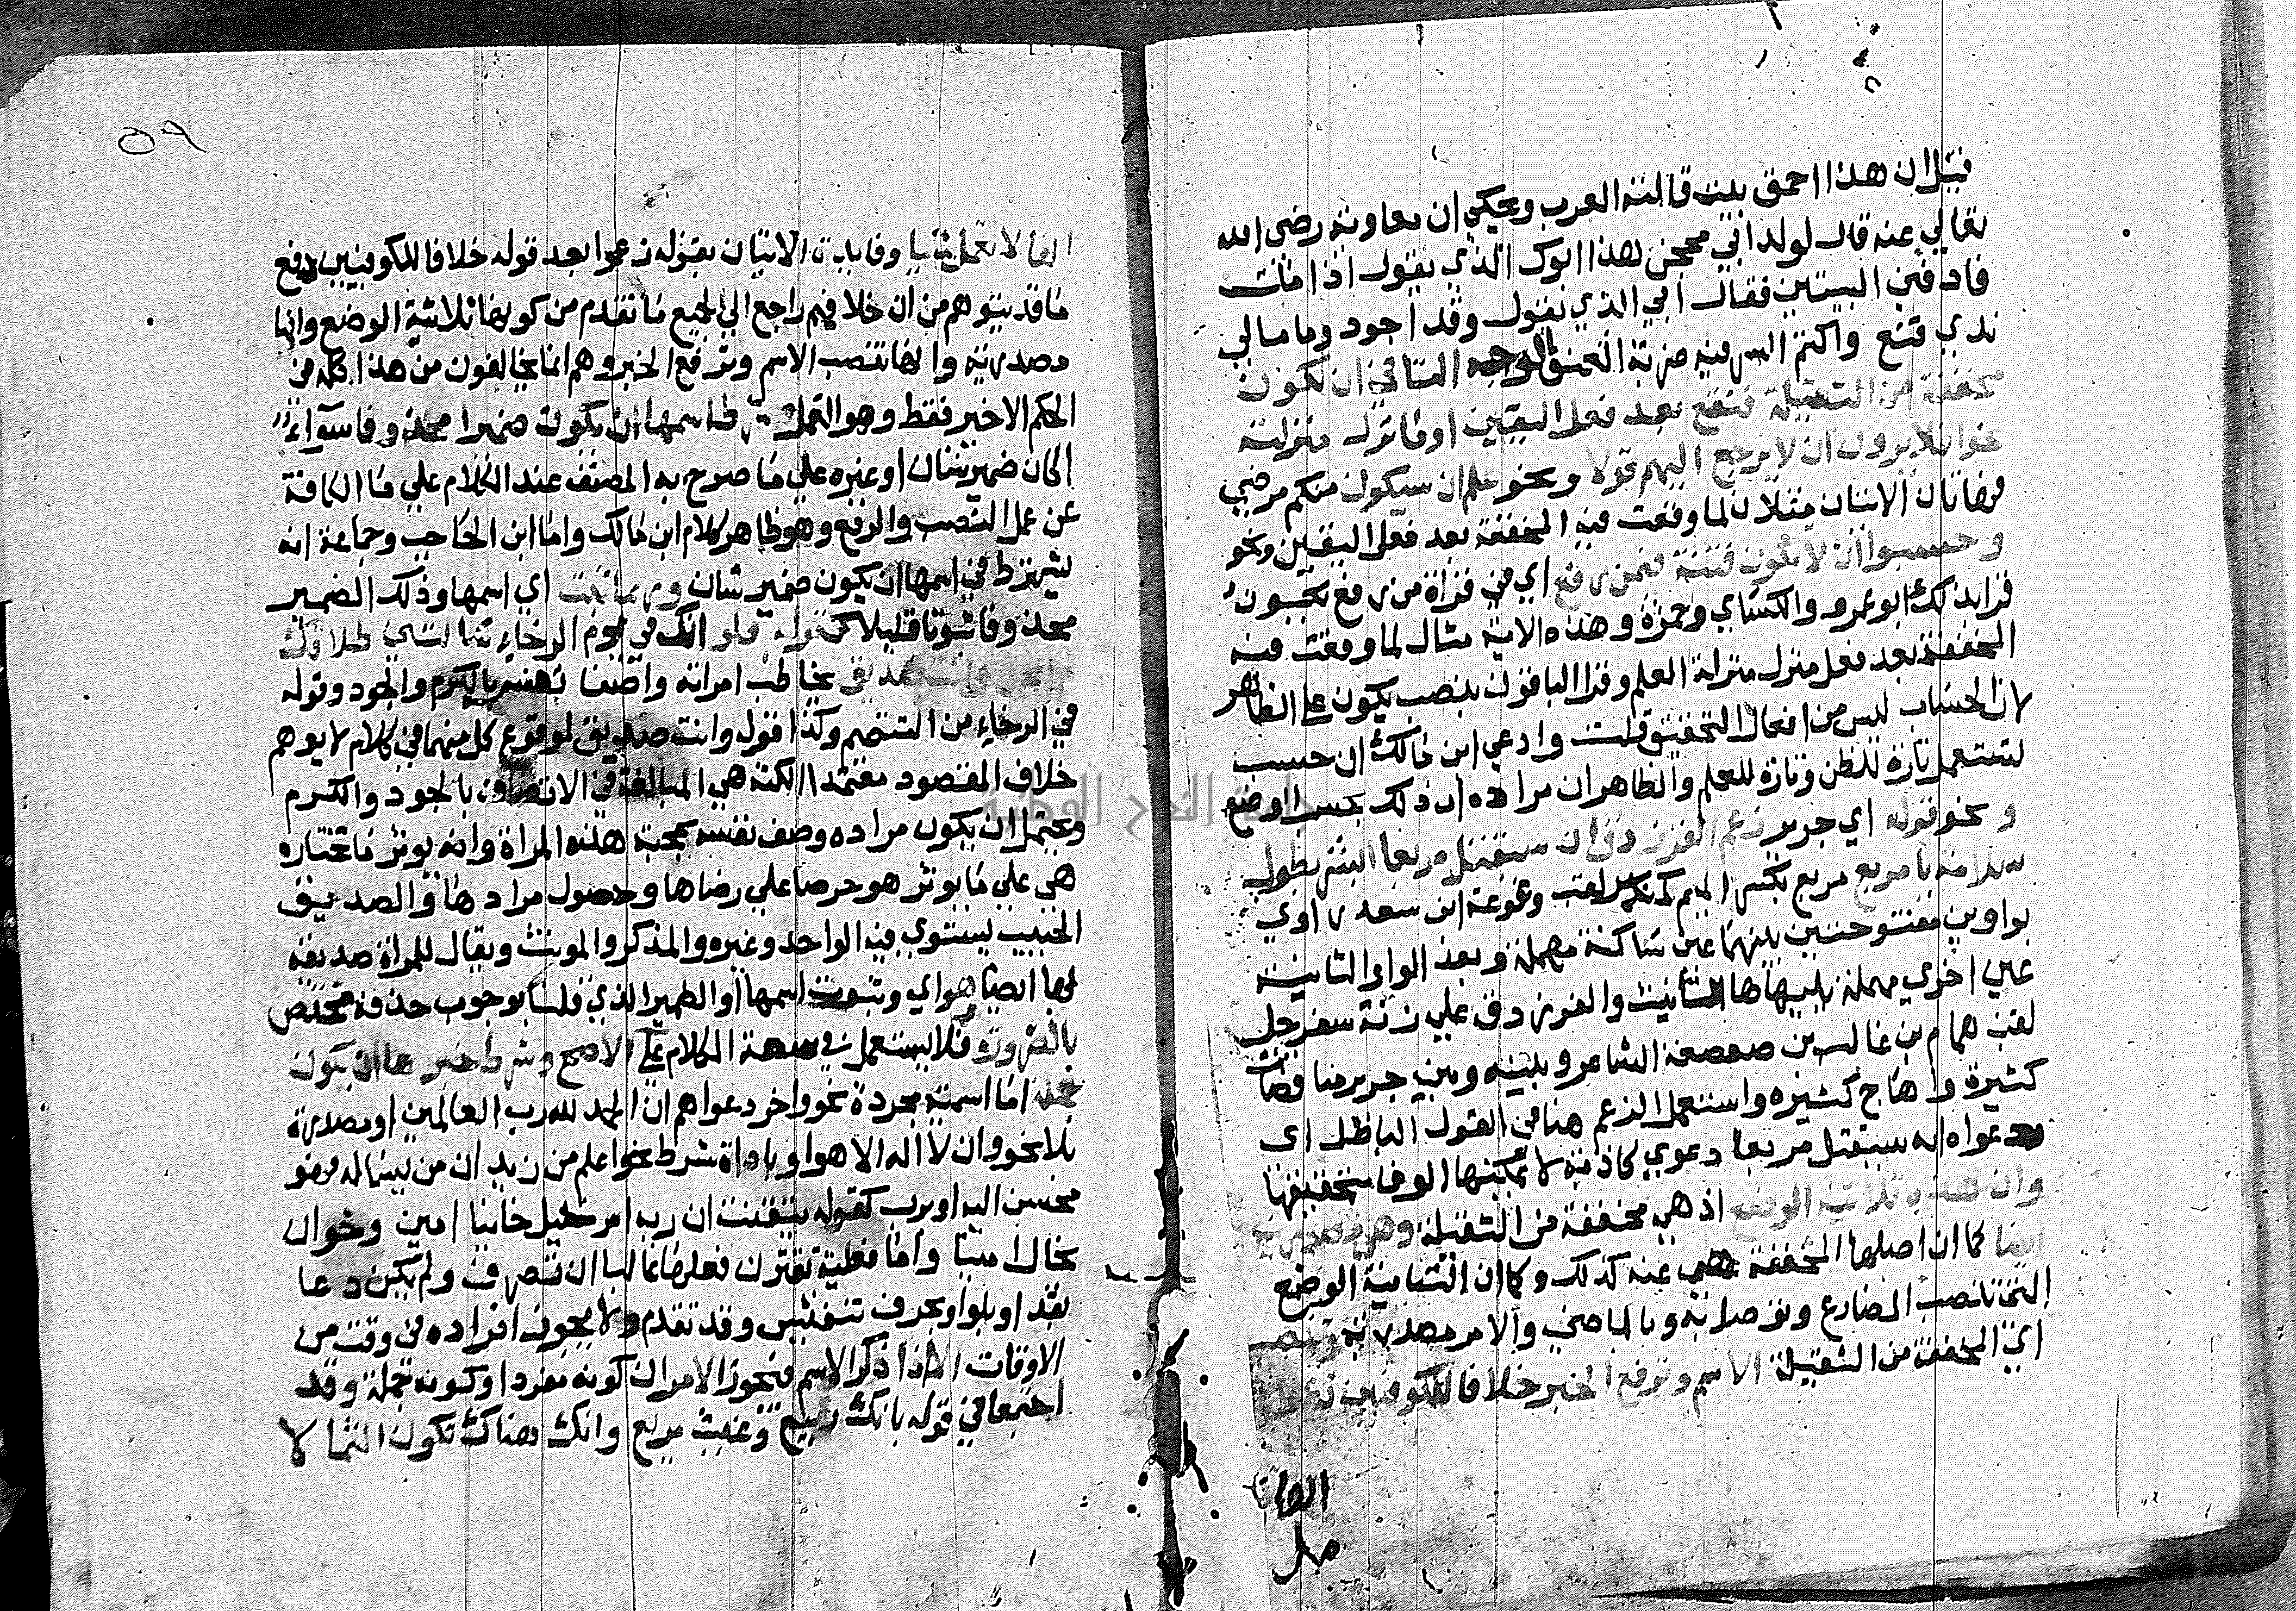 قيل ان هذا احمق بيت قالته العرب ويحكي ان معاوية رضي الله
تعالي عنه قال لولد ابي محجن هذا ابوك الذي يقول اذا مت
فادفني البيتين فقال ابي الذي يقول وقد اجود وما مالي
بذي فنع واكتم السر فيه ضربة العنق الوجه الثاني ان تكون
مخففة من الثقيلة فتقع بعد فعل اليقين او ما نزل منزلته
نحو افلا يرون ان لا يرجع اليهم قولا ونحو علم ان سيكون منكم مرضي
فهاتان الايتان مثلان لما وقعت فيه المخففة بعد فعل اليقين ونحو
وحسبوا ان لا تكون فتنة فيمن رفع اي في قراة من رفع تكون
قرا بذلك ابو عمرو والكسائي وحمزة وهذه الاية مثال لما وقعت فيه
المخففة بعد فعل منزل منزلة العلم وقرا الباقون بنصب يكون علي الظاهر
لان الحساب ليس من افعال التحقيق قلت وادعي ابن مالك ان حسب
تستعمل تارة للظن وتارة للعلم والظاهر ان مراده ان ذلك بحسب الوضع
ونحو قوله اي جرير زعم الفرزدق ان سيقتل مربعا ابشر بطول
سلامة يا مربع مربع بكسر الميم كمنبر لقب وعوعة ابن سعد راوي
بواوين مفتوحتين بينهما عين ساكنة مهملة وبعد الواو الثانية
عين اخري مهملة يليها ها التأنيث والفرزدق علي زنة سفرجل
لقب همام بن غالب بن صعصعة الشاعر وبينه وبين جرير مناقضات
كثيرة واهاج كثيره واستعمل الزعم هنا في القول الباطل اي
دعواه انه سيقتل مربعا دعوي كاذبة لا يمكنها الوفا بتحقيقها
وان هذه ثلاثية الوضع اذ هي مخففة من الثقيلة وهي مصدرية
ايضا كما ان اصلها المخففة هي عنه كذلك وكما ان الثنائية الوضع
التي تنصب المضارع وتوصل به وبالماضي والامر مصدرية وتنصب
اي المخففة من الثقيلة الاسم وترفع الخبر خلافا للكوفيين زعموا
انها
٥٩
انها لا تعمل شيا وفايدة الاتيان بقوله زعموا بعد قوله خلافا للكوفيين دفع
ما قد يتوهم من ان خلافهم راجع الي جميع ما تقدم من كونها ثلاثية الوضع وانها
مصدرية وانها تنصب الاسم وترفع الخبر وهم انما يخالفون من هذا كله في
الحكم الاخير فقط وهو العمل وشرط اسمها ان يكون ضميرا محذوفا سواء
اكان ضمير شان او غيره علي ما صرح به المصنف عند الكلام علي ما الكافة
عن عمل النصب والرفع وهو ظاهر كلام ابن مالك واما ابن الحاجب وجماعة انه
يشترط في اسمها ان يكون ضمير شان وربما ثبت اي اسمها وذلك الضمير
محذوفا ثبوتا قليلا كقوله فلو انك في يوم الرخاء سالتني طلاقك
لم ابخل وانت صديق يخاطب امراته واصفا نفسه بالكرم والجود وقوله
في الرخاء من التتميم وكذا قوله وانت صديق لوقوع كل منهما في كلام لا يوهم
خلاف المقصود مفيدا لنكتة هي المبالغة في الاتصاف بالجود والكرم
ويحتمل ان يكون مراده وصف نفسه بمحبة هذه المراة وانه يوثر ما تختاره
هي علي ما يوثر هو حرصا علي رضاها وحصول مرادها والصديق
الحبيب يستوي فيه الواحد وغيره والمذكر والمونث ويقال للمراة صديقة
لها ايضا هو اي وثبوت اسمها والضمير الذي قلنا بوجوب حذفه مختص
بالضرورة فلا يستعمل في سعة الكلام علي الاصح وشرط خبرها ان يكون
جملة اما اسمية مجردة نحو واخر دعواهم ان الحمد لله رب العالمين او مصدرة
بلا نحو وان لا اله الا هو او باداة شرط نحو اعلم من زيد ان من يساله فهو
محسن اليه او برب كقوله تيقنت ان رب امرء خيل خاينا امين وخوان
يخال امينا واما فعلية تقترن فعلها غالبا ان تصرف ولم يكن دعا
بقد او بلو او بحرف تنفيس وقد تقدم ولا يجوز افراده في وقت من
الاوقات الا اذا ذكر الاسم فيجوز الامران كونه مفردا وكونه جملة وقد
اجتمعا في قوله بانك ربيع وغيث مريع وانك هناك تكون الثمالا